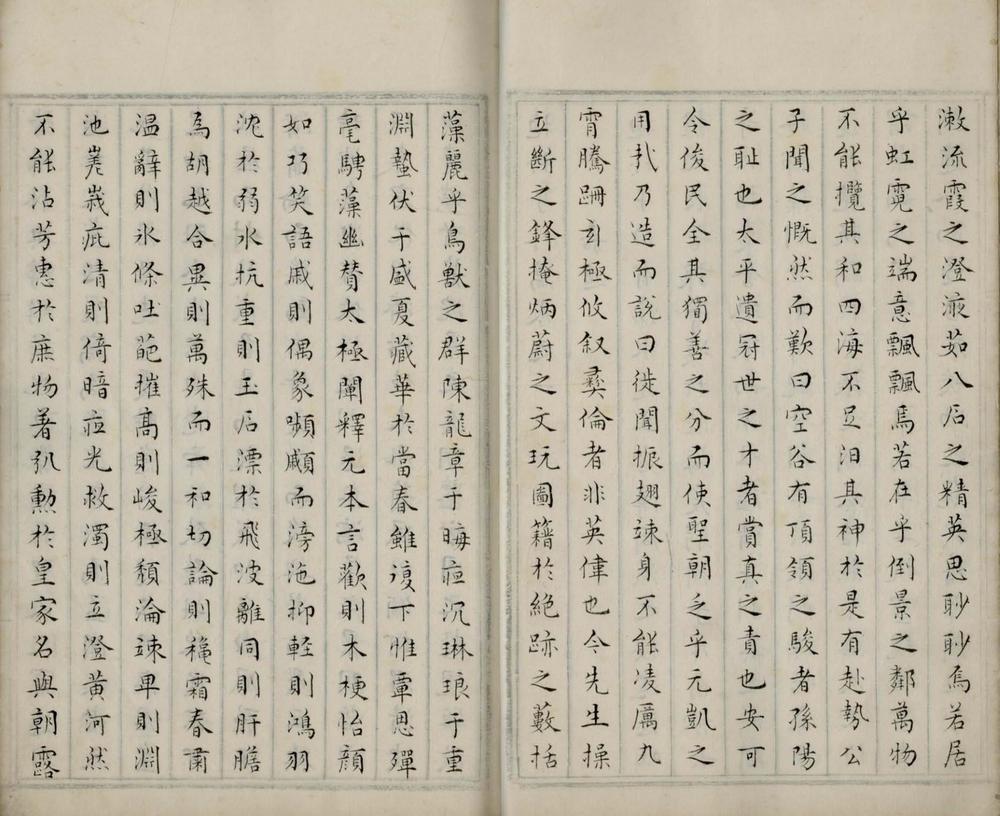 漱流霞之澄液茹八石之精英思眇眇焉若居
乎虹霓之端意飄飄焉若在乎倒景之鄰萬物
不能攪其和四海不足汩其神於是有赴勢公
子聞之慨然而歎曰空谷有項領之駿者孫陽
之恥也太平遺冠世之才者賞真之責也安可
令俊民全其獨善之分而使聖朝乏乎元凱之
用哉乃造而說曰徒聞振翅竦身不能凌厲九
霄騰跚玄極攸叙彝倫者非英偉也今先生操
立斷之鋒掩炳蔚之文玩圖籍於絕跡之藪括
藻麗乎鳥獸之群陳龍章于晦夜沉琳琅于重
淵蟄伏于盛夏藏華於當春雖復下惟覃思殫
毫騁藻幽贊太極闡釋元本言歡則木梗怡顏
如巧笑語戚則偶象嚬顣而滂沱抑輕則鴻羽
沈於弱水抗重則玉石漂於飛波離同則肝膽
為胡越合異則萬殊而一和切論則穐霜春肅
溫辭則氷條吐葩摧高則峻極頹淪竦卑則淵
池嵳峩疵清則倚暗夜光救濁則立澄黃河然
不能沾芳惠於庶物著弘勳於皇家名與朝露